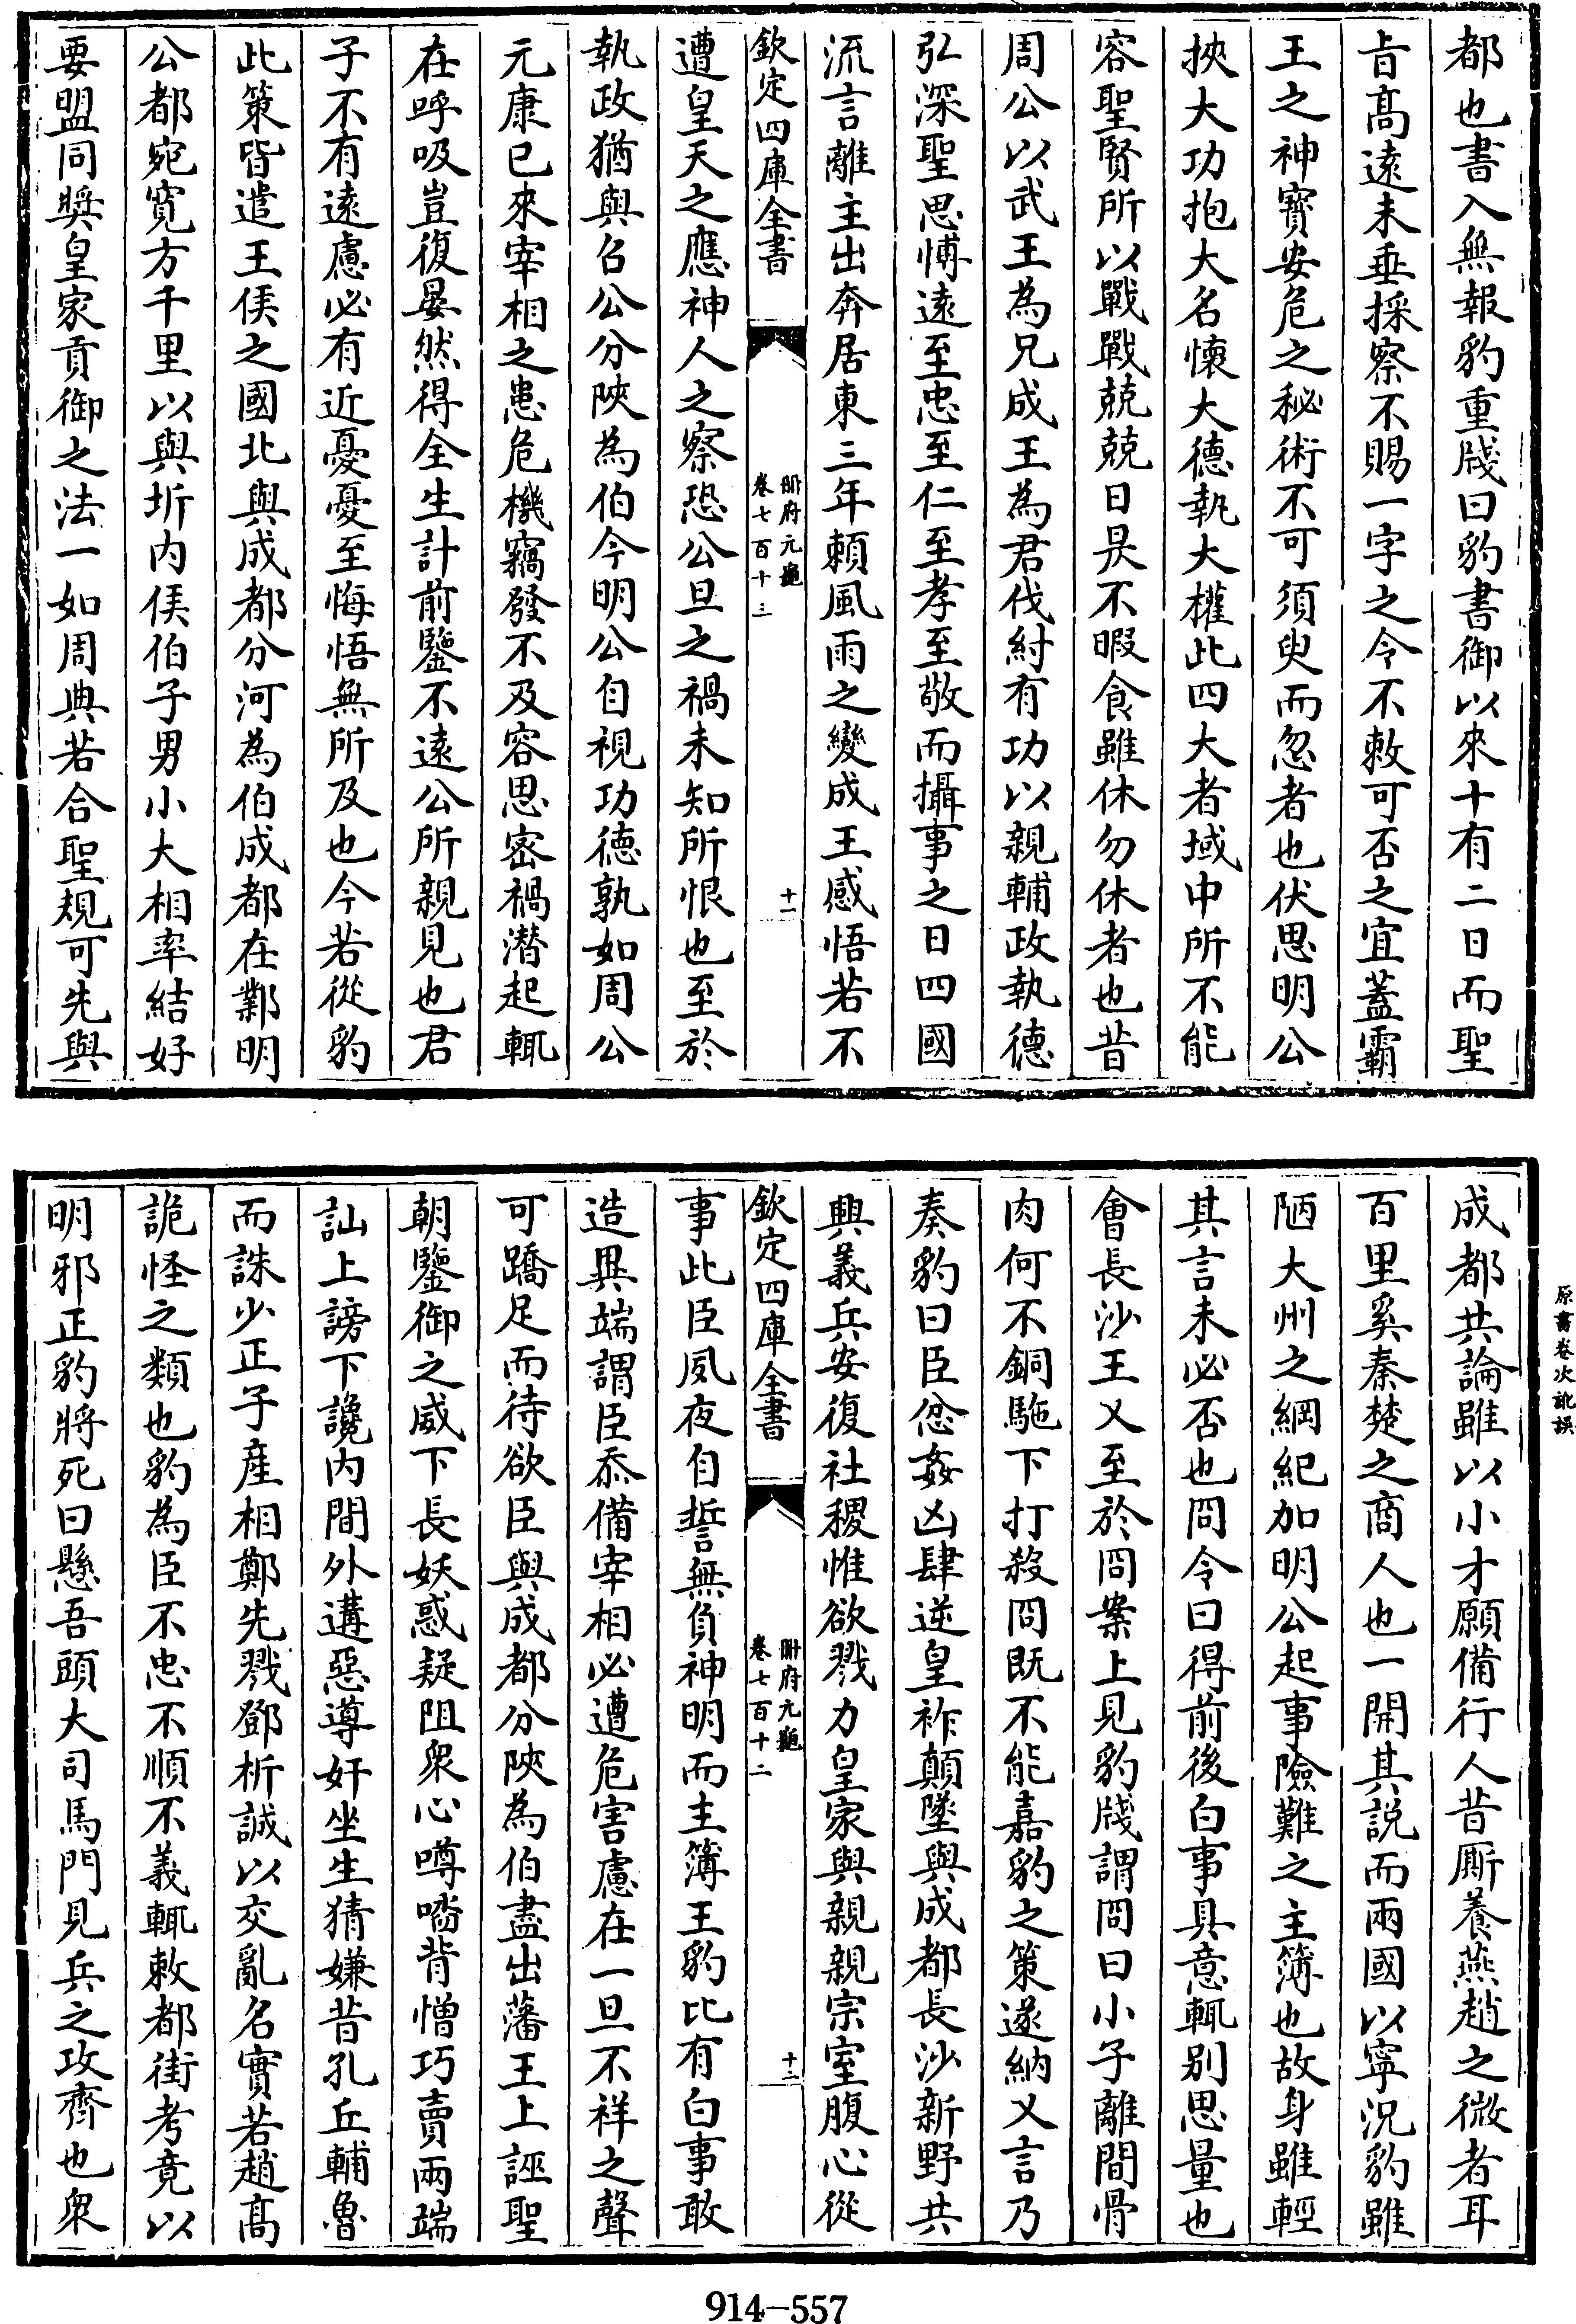 都也書入無報豹重牋曰豹書御以來十有二日而聖
㫖髙遠未垂採察不賜一字之令不敕可否之宜蓋霸
王之神寳安危之秘術不可須臾而忽者也伏思明公
挾大功抱大名懷大德執大權此四大者域中所不能
容聖賢所以戰戰兢兢日昃不暇食雖休勿休者也昔
周公以武王為兄成王為君伐紂有功以親輔政執德
弘深聖思愽遠至忠至仁至孝至敬而攝事之日四國
流言離主出奔居東三年頼風雨之變成王感悟若不
欽定四庫全書
冊府元龜
卷七百十三
十一
遭皇天之應神人之察恐公旦之禍未知所恨也至於
執政猶與召公分陜為伯今明公自視功徳孰如周公
元康已來宰相之患危機竊發不及容思密禍潜起輒
在呼吸豈復晏然得全生計前鑒不逺公所親見也君
子不有逺慮必有近憂憂至悔悟無所及也今若從豹
此策皆遣王侯之國北與成都分河為伯成都在鄴明
公都宛寛方千里以與圻内侯伯子男小大相率結好
要盟同奬皇家貢御之法一如周典若合聖規可先與
原書卷次訛誤
成都共論雖以小才願備行人昔厮養燕趙之微者耳
百里奚秦楚之商人也一開其説而兩國以寧況豹雖
陋大州之綱紀加明公起事險難之主簿也故身雖輕
其言未必否也冏令曰得前後白事具意輒别思量也
會長沙王乂至於冏案上見豹牋謂冏曰小子離間骨
肉何不銅駞下打殺冏既不能嘉豹之策遂納乂言乃
奏豹曰臣忿姦凶肆逆皇祚顛墜與成都長沙新野共
興義兵安復社稷惟欲戮力皇家與親親宗室腹心從
欽定四庫全書
冊府元龜
卷七百十二
十二
事此臣夙夜自誓無負神明而主簿王豹比有白事敢
造異端謂臣忝備宰相必遭危害慮在一旦不祥之聲
可蹻足而待欲臣與成都分陜為伯盡出藩王上誣聖
朝鑒御之威下長妖惑疑阻衆心噂㗳背憎巧賣兩端
訕上謗下讒内間外遘惡導奸坐生猜嫌昔孔丘輔魯
而誅少正子産相鄭先戮鄧析誠以交亂名實若趙髙
詭怪之類也豹為臣不忠不順不義輒敕都街考竟以
明邪正豹將死曰懸吾頭大司馬門見兵之攻齊也衆
914-557